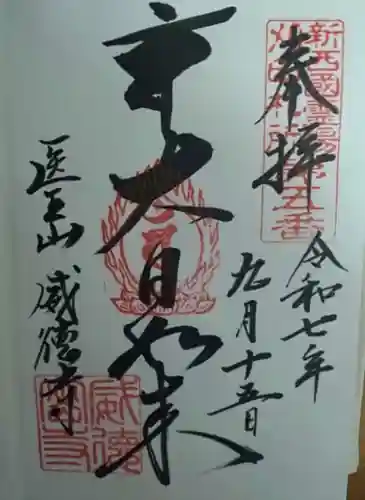 奉拝
令和七年
九月十五日
大日如来
医王山 威徳寺
新西國霊場
威徳